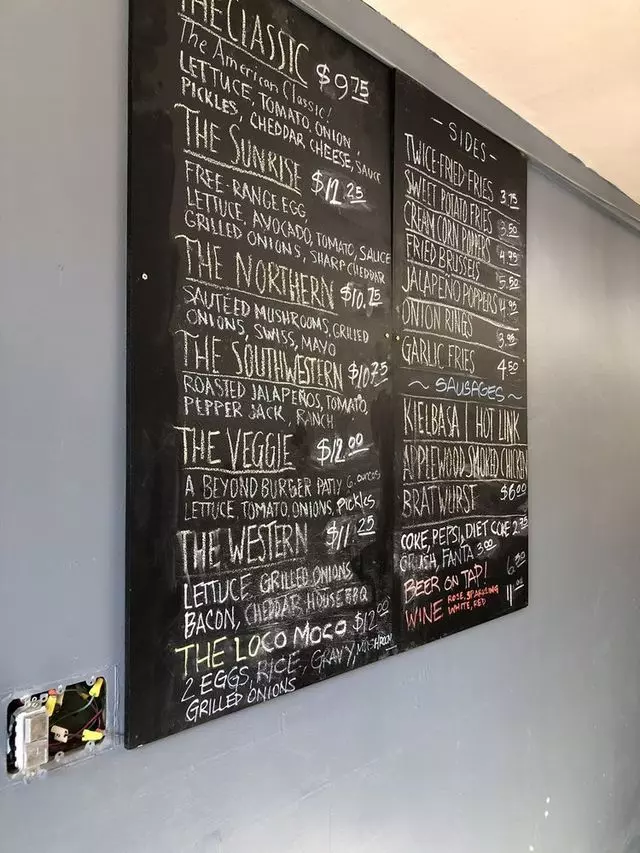 THE CLASSIC $9.75
The American Classic!
LETTUCE, TOMATO, ONION,
PICKLES, CHEDDAR CHEESE, SAUCE
THE SUNRISE $12.25
FREE-RANGE EGG,
LETTUCE, AVOCADO, TOMATO, SAUCE
GRILLED ONIONS, SHARP CHEDDAR
THE NORTHERN $10.75
SAUTÉED MUSHROOMS, GRILLED
ONIONS, SWISS, MAYO
THE SOUTHWESTERN $10.75
ROASTED JALAPEÑOS, TOMATO,
PEPPER JACK, RANCH
THE VEGGIE $12.00
A BEYOND BURGER PATTY 6. ounces
LETTUCE, TOMATO, ONIONS, pickles
THE WESTERN $11.25
LETTUCE, GRILLED ONIONS,
BACON, CHEDDAR, HOUSE BBQ
THE LOCO MOCO $12.00
2 EGGS, RICE, GRAVY, MUSHROOM
GRILLED ONIONS
- SIDES -
TWICE-FRIED FRIES 3.75
SWEET POTATO FRIES 3.50
CREAM CORN POPPERS 4.95
FRIED BRUSSELS 5.50
JALAPEÑO POPPERS 4.95
ONION RINGS 3.95
GARLIC FRIES 4.50
~ SAUSAGES ~
KIELBASA | HOT LINK
APPLEWOOD SMOKED CHICKEN
BRATWURST $6.00
COKE, PEPSI, DIET COKE 2.75
CRUSH, FANTA 3.00
BEER ON TAP!
WINE ROSE, SPARKLING
WHITE, RED